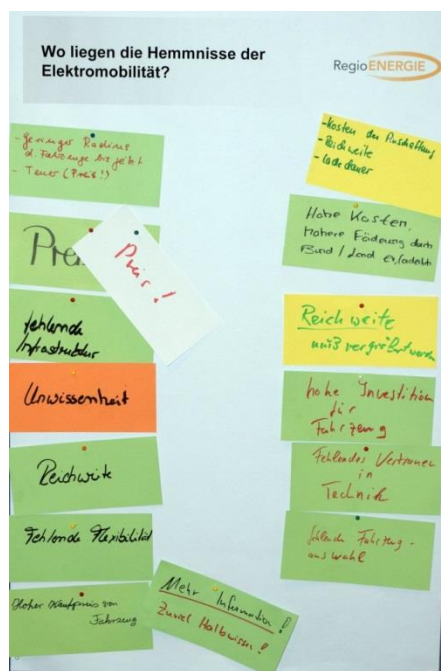 Wo liegen die Hemmnisse der
Elektromobilität?
RegioENERGIE
- Geringer Radius
d. Fahrzeuge bis jetzt
- Teuer (Preis!)
Preis!
fehlende
Infrastruktur
Unwissenheit
Reichweite
Fehlende Flexibilität
Hoher Kaufpreis von
Fahrzeug
Mehr Information!
Zuviel Halbwissen!
- Kosten der Anschaffung
- Reichweite
- Ladedauer
Hohe Kosten,
höhere Förderung durch
Bund / Land
Reichweite
muß vergrößert werden
hohe Investition
für
Fahrzeug
Fehlendes Vertrauen
in
Technik
fehlende Fahrzeug-
auswahl